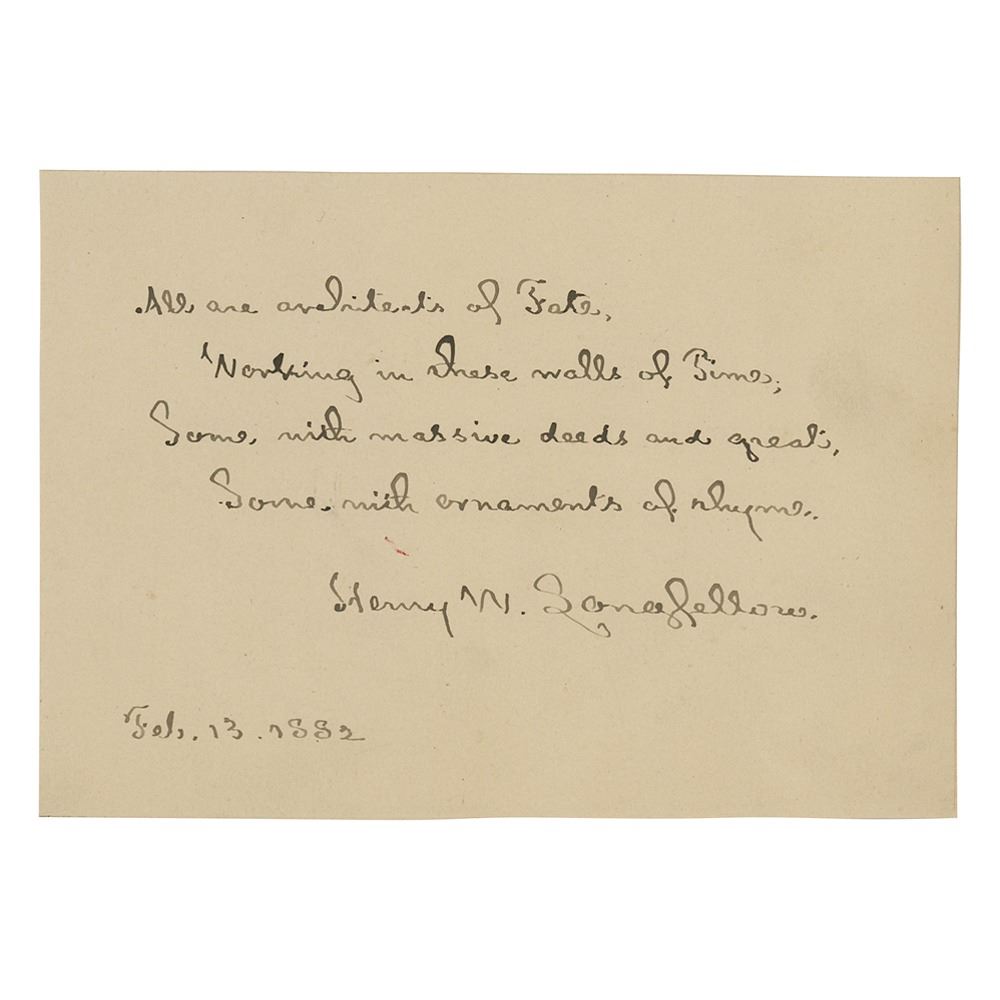 All are architects of Fate,
Working in these walls of Time;
Some with massive deeds and great,
Some with ornaments of rhyme.
Henry W. Longfellow.
Feb. 13. 1882